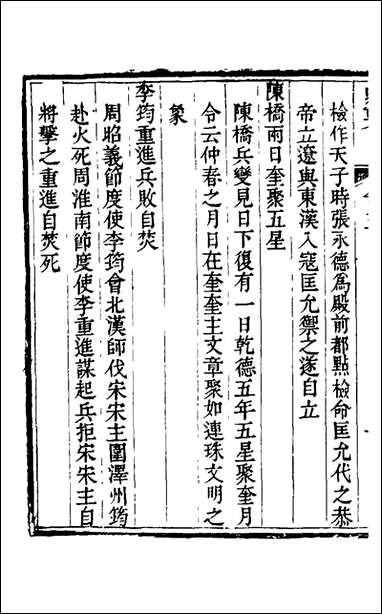 檢作天子時張永德爲殿前都㸃檢命匡允代之恭
帝立遼與東漢入寇匡允禦之遂自立
陳橋兩日奎聚五星
陳橋兵變見日下復有一日乾德五年五星聚奎月
令云仲春之月日在奎奎主文章聚如連珠文明之
象
李筠重進兵敗自焚
周昭義節度使李筠會北漢師伐宋宋主圍澤州筠
赴火死周淮南節度使李重進謀起兵拒宋宋主自
將擊之重進自焚死